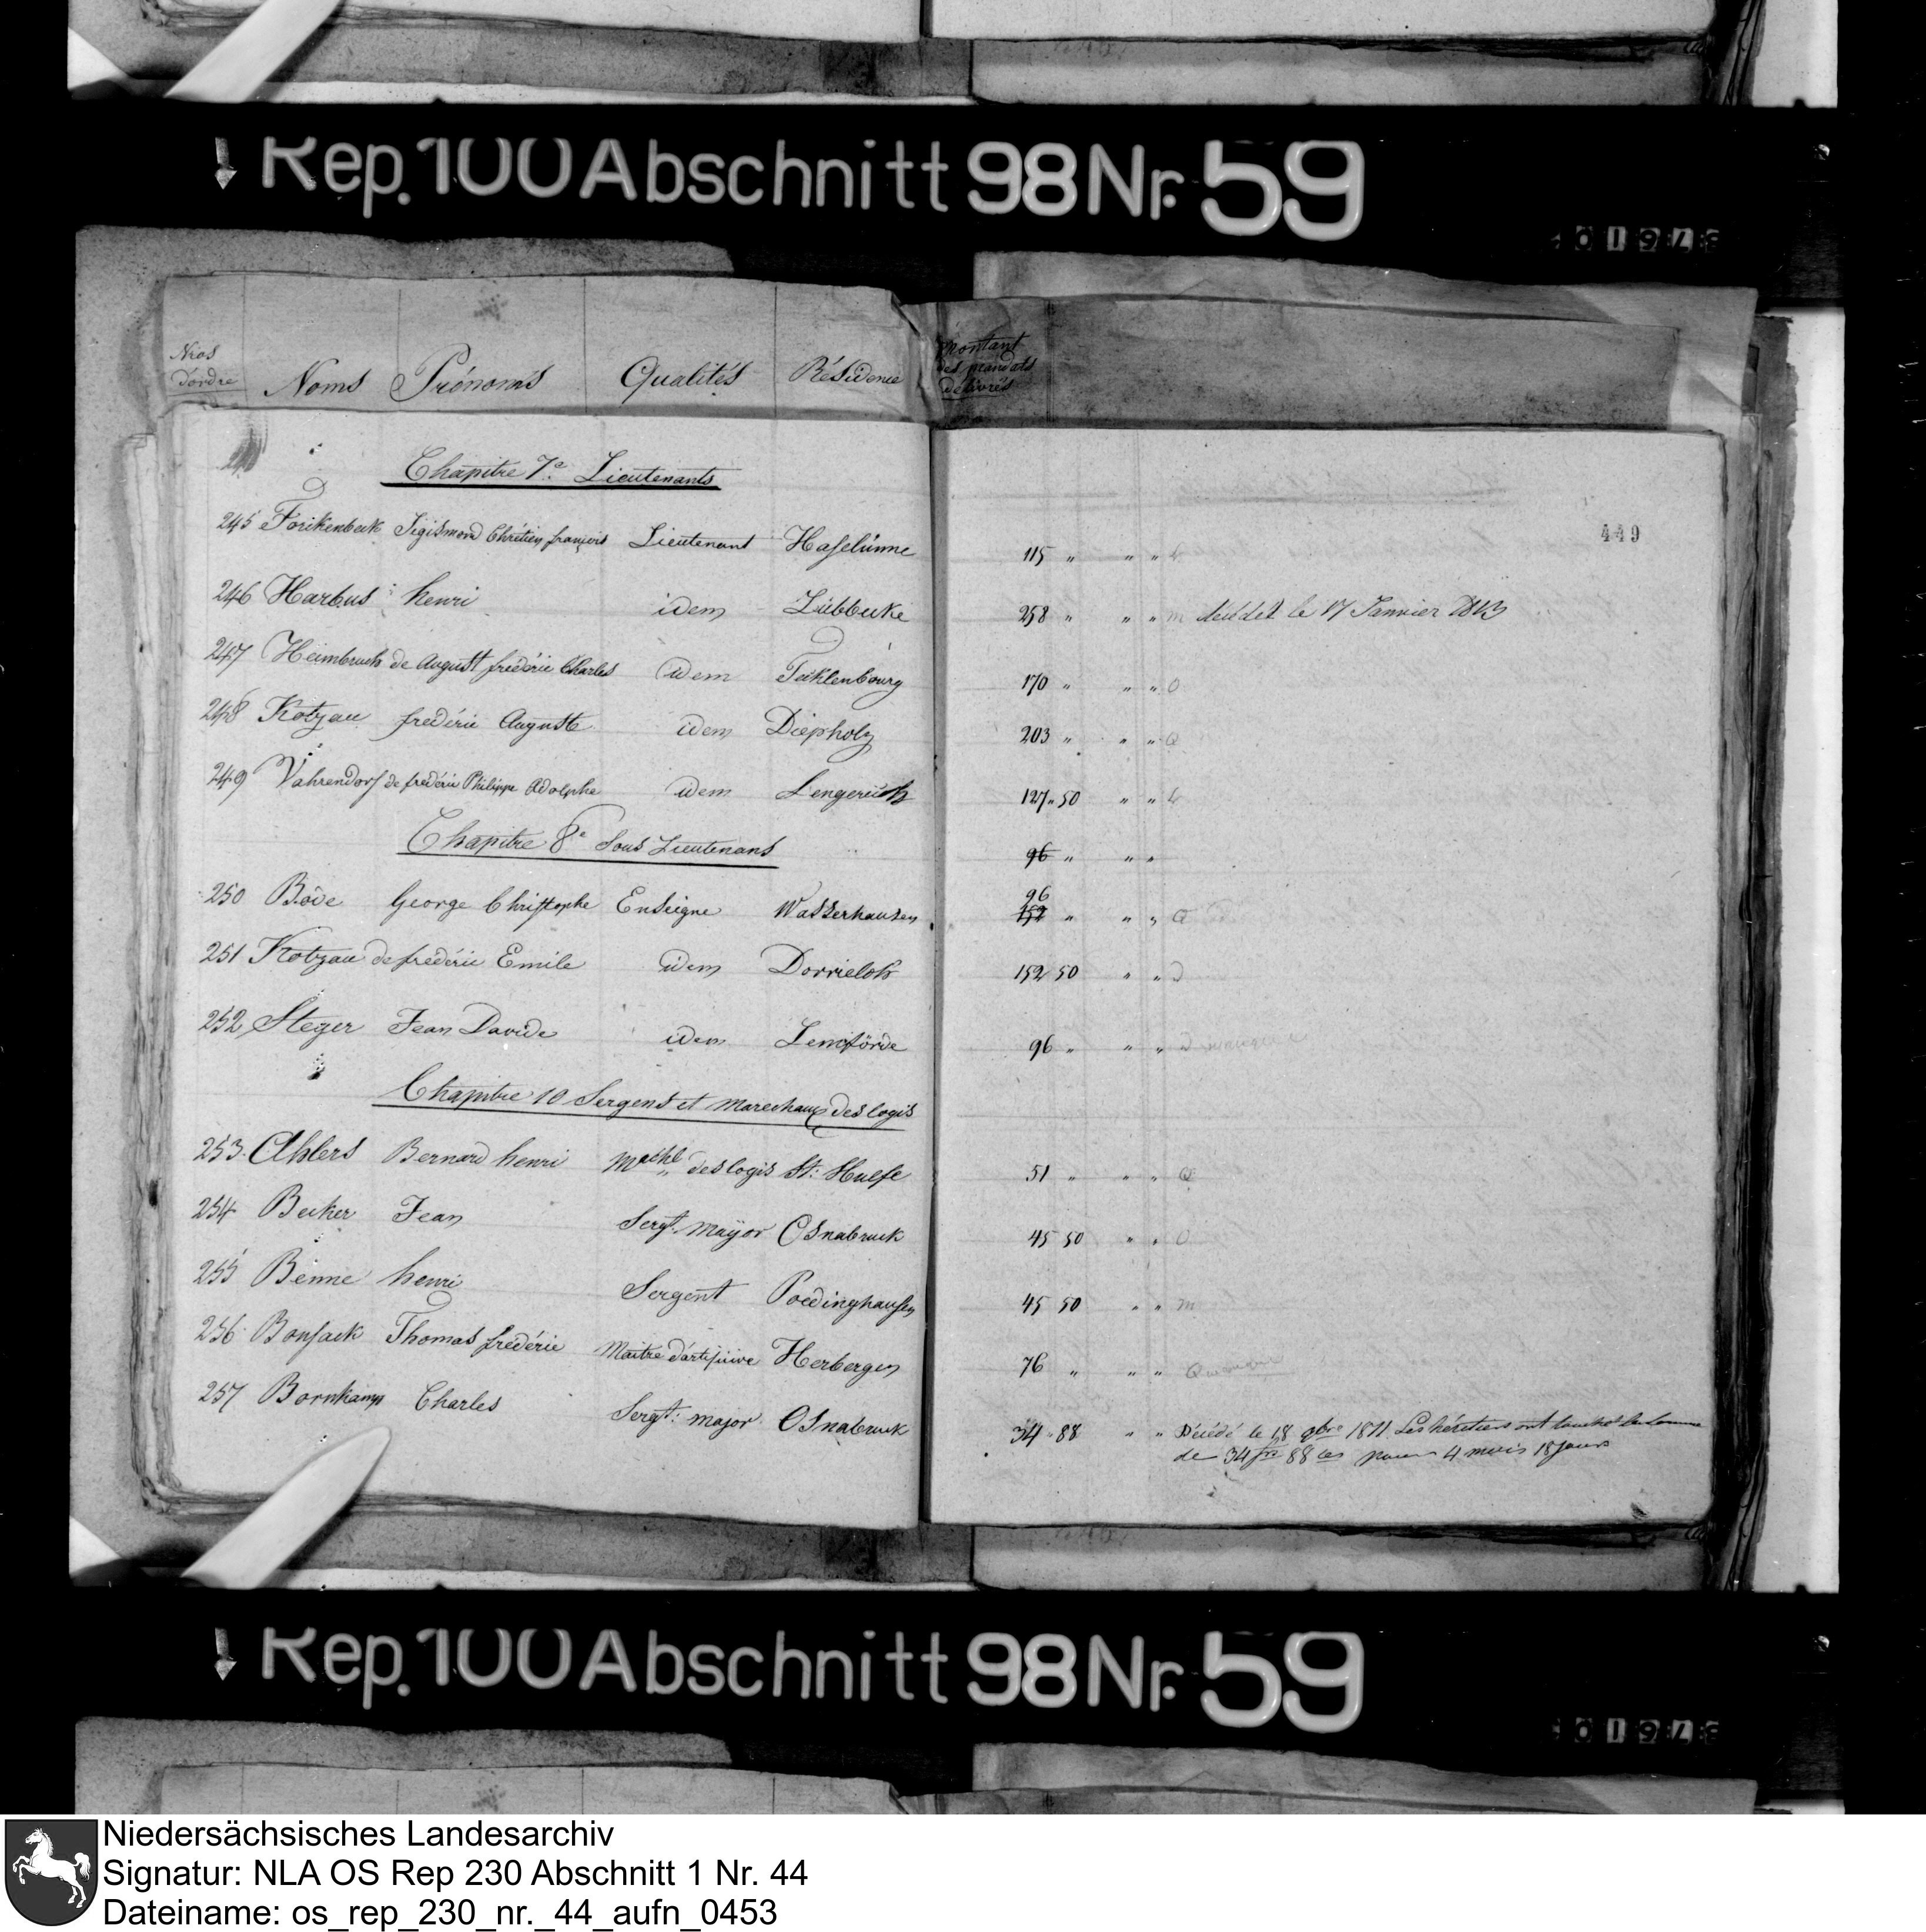 Rep. 100 Abschnitt 98 Nr. 59
Nros d'ordre Noms Prénoms Qualités Résidence Montant des mandats délivrés
Chapitre 7e. Lieutenants
449
245 Forikenbeck Sigismond Chrétien françois Lieutenant Haselünne 115 " " "
246 Harbus henri idem Lübbecke 258 " " " m décédé le 17 Janvier 1813
247 Heimbruch de August frédéric Charles idem Tecklenbourg 170 " " " O
248 Kotzau frédéric Auguste idem Diepholz 203 " " " Q
249 Vahrendorf de frédéric Philippe Adolphe idem Lengerich 127 " 50 " "
Chapitre 8e Sous Lieutenans 96 " " "
250 Böde George Christophe Enseigne Wasserhausen 96 152 " " " Q
251 Kotzau de frédéric Emile idem Dorrieloh 152 50 " " D
252 Steger Jean Davide idem Lemförde 96 " " "
Chapitre 10 Sergens et marechaux des logis
253. Ahlers Bernard henri Mrchl des logis St: Huelfe 51 " " " Q
254 Becker Jean Sergt. mayor Osnabruck 45 50 " " O
255 Benne henri Sergent Poedinghausen 45 50 " " m
256 Bonsack Thomas frédéric Maitre d'artifiice Herbergen 76 " " "
257 Bornkamp Charles Sergt: major Osnabruck 34 " 88 " " Décédé le 18 9bre 1811. Les héritiers ont touché la somme
de 34 frs 88 ces pour 4 mois 18 jours
Rep. 100 Abschnitt 98 Nr. 59
Niedersächsisches Landesarchiv
Signatur: NLA OS Rep 230 Abschnitt 1 Nr. 44
Dateiname: os_rep_230_nr._44_aufn_0453